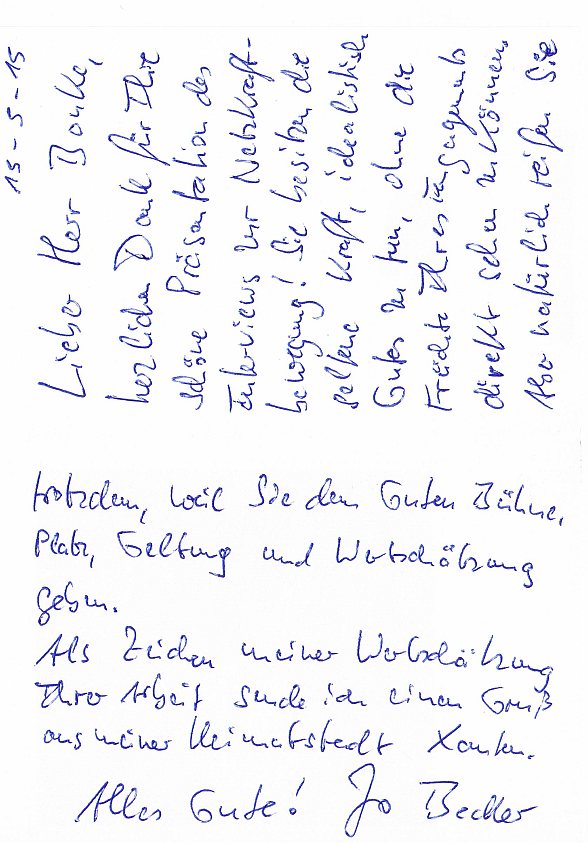 15-5-15
Lieber Herr Bonke,
herzlichen Dank für Ihre
schöne Präsentation des
Interviews zur Netzkraft-
bewegung! Sie besitzen die
seltene Kraft, idealistisch
Gutes zu tun, ohne die
Früchte Ihres Engagements
direkt sehen zu können.
Aber natürlich reifen Sie
trotzdem, weil Sie dem Guten Bühne,
Platz, Geltung und Wertschätzung
geben.
Als Zeichen meiner Wertschätzung
Ihrer Arbeit sende ich einen Gruß
aus meiner Heimatstadt Xanten.
Alles Gute! Jo Becker